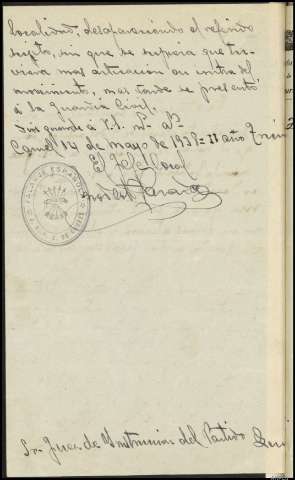 localidad, desapareciendo el referido
sujeto, sin que se supiera que tu-
viera mas actuacion en contra del
movimiento, mas tarde se presentó
á la Guardia Civil.
Dios guarde á V.S. ms. as.
14 de mayo de 1938 = II año Triun
El Jefe Local
FALANGE ESPAÑOLA
Sr. Juez de Instruccion del Partido